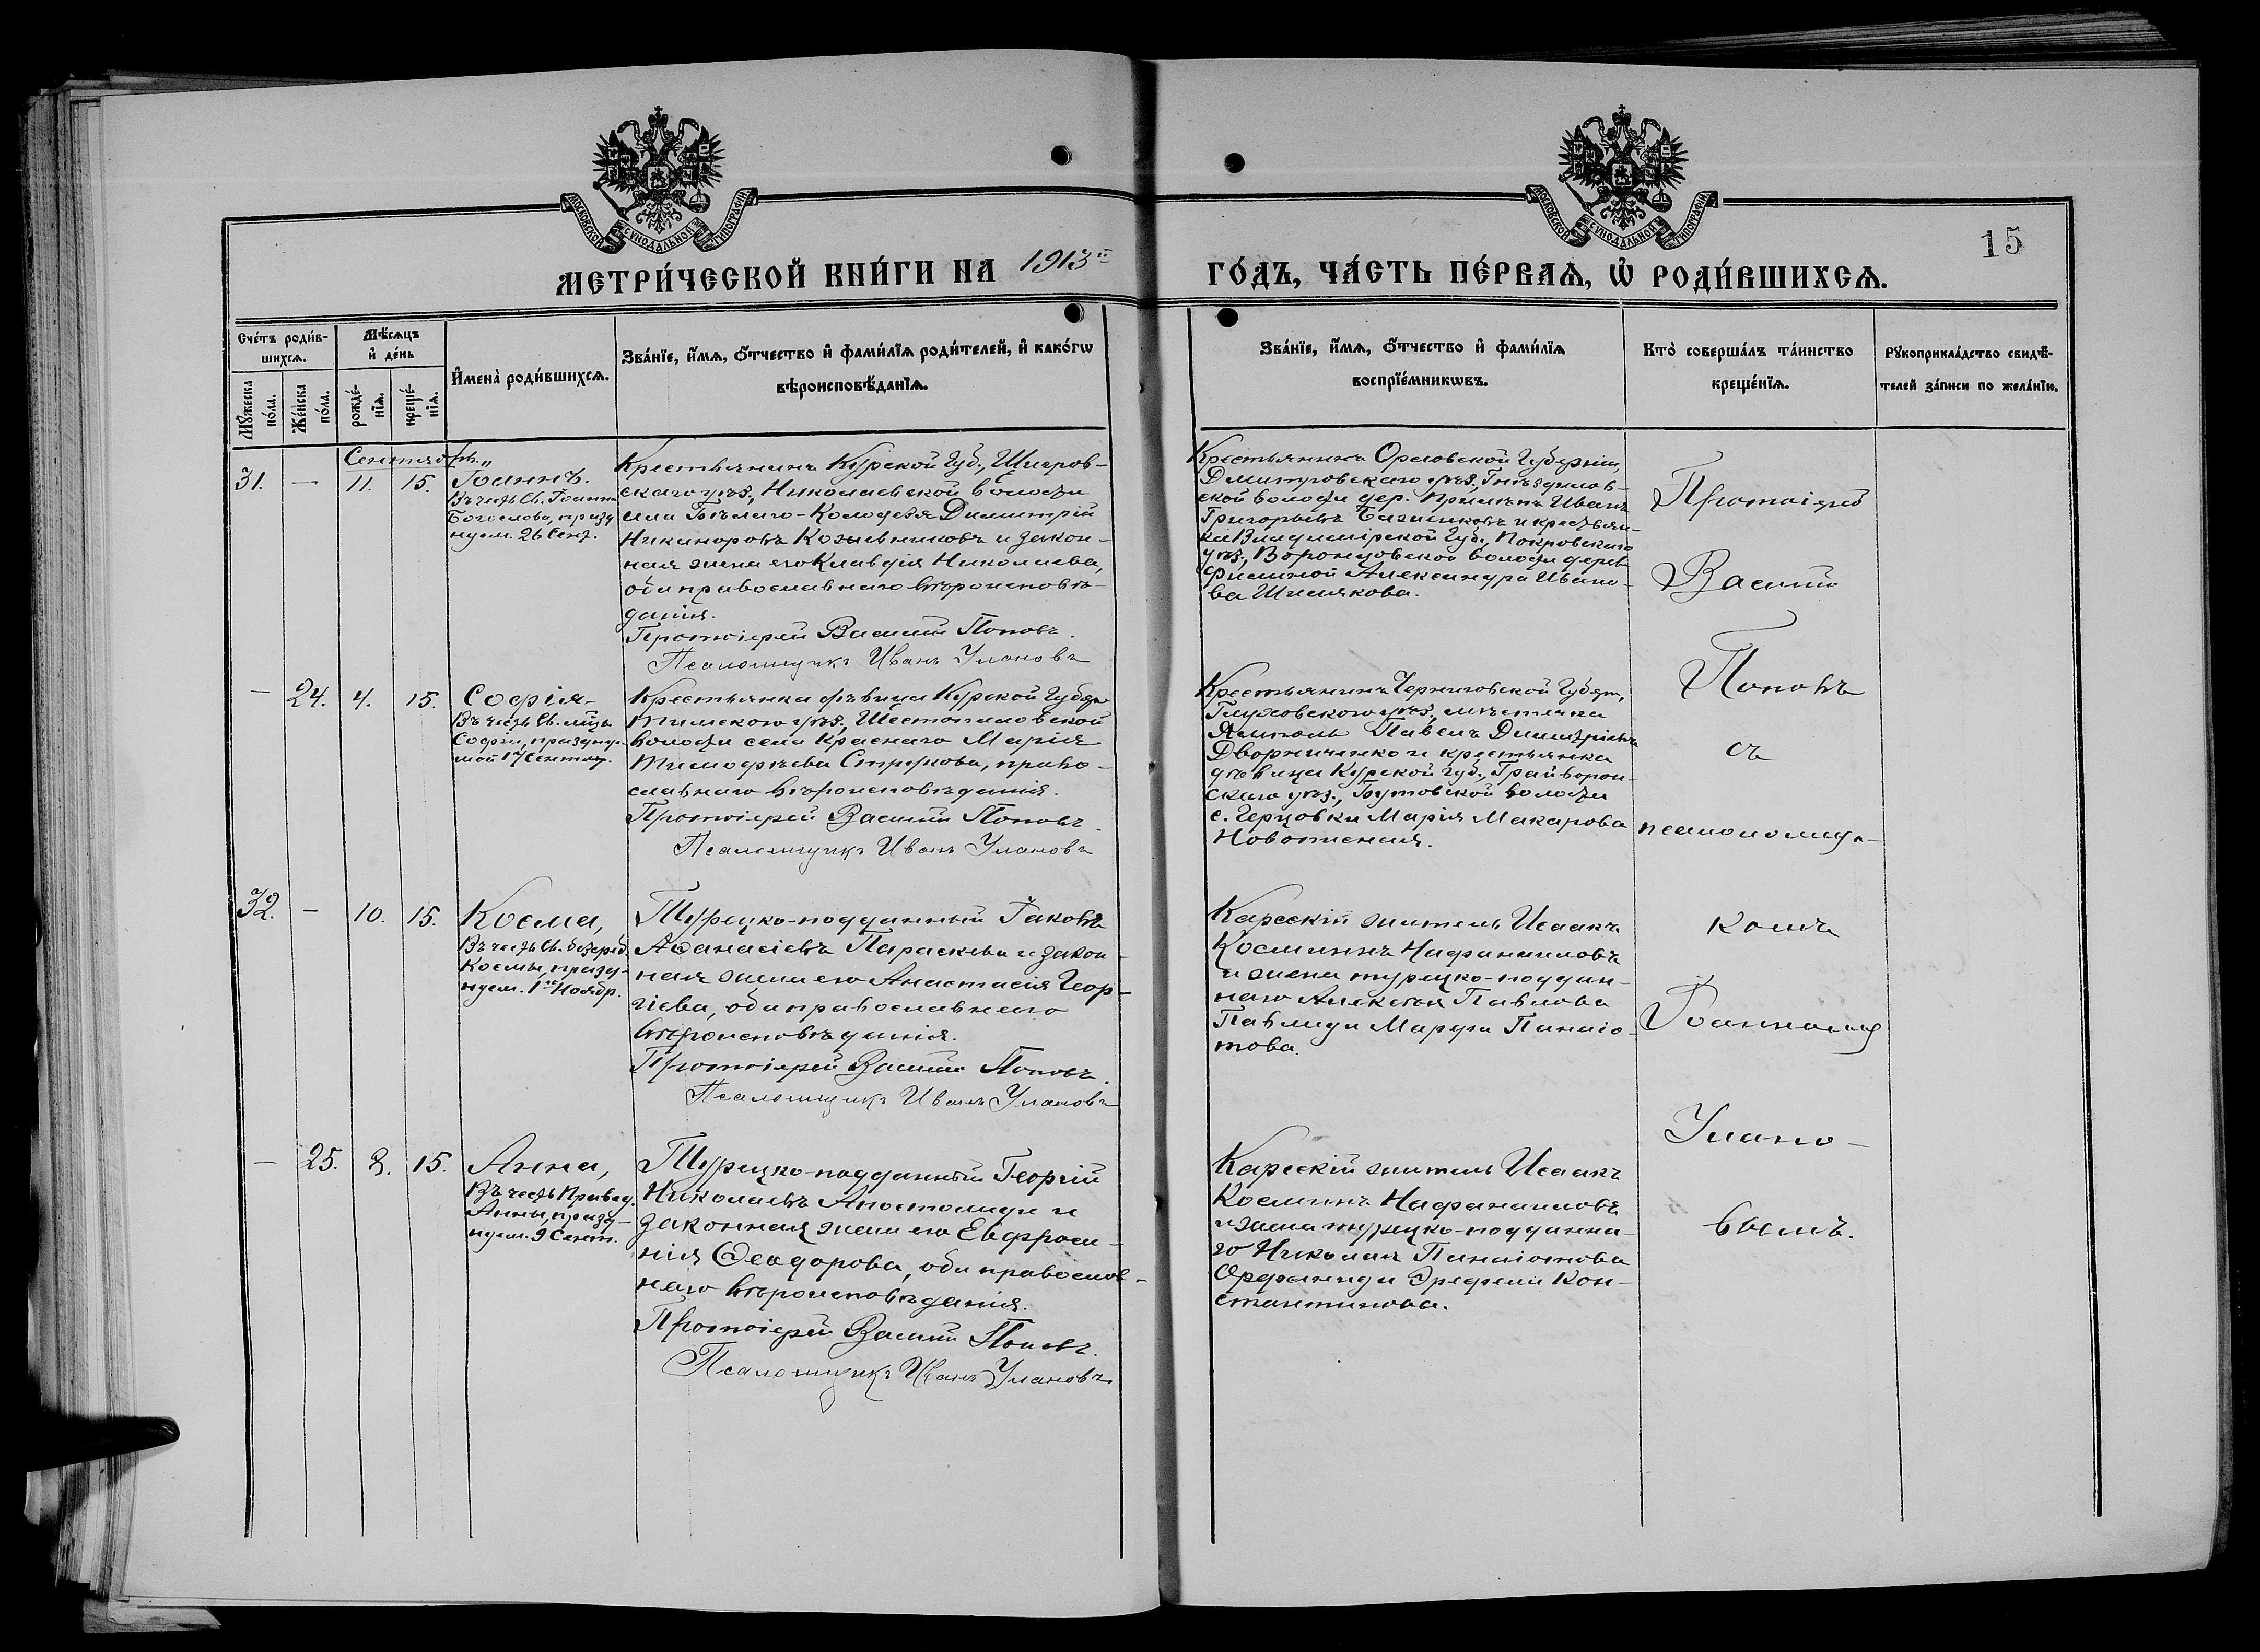 МОСКОВСКОЙ СУНОДАЛЬНОЙ ТИПОГРАФІИ
МОСКОВСКОЙ СУНОДАЛЬНОЙ ТИПОГРАФІИ
15
МЕТРИ́ЧЕСКОЙ КНИ́ГИ НА 1913й
ГО́ДЪ, ЧА́СТЬ ПЕ́РВАѦ, Ѡ҆ РОДИ́ВШИХСѦ.
Сче́тъ роди́в-
шихсѧ.
Мѣ́сѧцъ
и҆ де́нь
И҆мена̀ роди́вшихсѧ.
Зва́нїе, и҆́мѧ, ѻ҆́тчество и҆ фами́лїѧ роди́телей, и҆ како́гѡ
вѣроисповѣ́данїѧ.
Мꙋ́жеска
по́ла.
Же́нска
по́ла.
рожде́-
нїѧ.
креще́-
нїѧ.
Зва́нїе, и҆́мѧ, ѻ҆́тчество и҆ фами́лїѧ
воспрїе́мникѡвъ.
Кто̀ соверша́лъ та́инство
креще́нїѧ.
Рꙋкоприкла́дство свидѣ́-
телей за́писи по жела́нїю.
Сентябрь
31. — 11. 15. Іоаннъ.
Въ честь Св. Іоанна
Богослова, празд
нуем. 26 Сент.
Крестьянинъ Курской Губ., Щигров-
скаго уѣз., Николаевской волости
села Бѣлаго-Колодезя Димитрій
Никаноровъ Кожевниковъ и закон-
ная жена его Клавдія Николаева,
оба православнаго вѣроисповѣ-
данія.
Протоіерей Василій Поповъ.
Псаломщикъ Иванъ Улановъ
Крестьянинъ Орловской Губерніи,
Дмитровскаго уѣз., Гнѣздилов-
ской волости дер. Иванъ
Григорьевъ и крестьян-
ка Владимірской Губ., Покровскаго
уѣз., Воронцовской волости дерев
Филиной Александра Ивано-
ва Шмелькова.
— 24. 4. 15. Софія
Въ честь Св. мцы
Софіи, праздну-
мой 17 Сентяб.
Крестьянка дѣвица Курской Губер
Тимскаго уѣз., Шестопаловской
волости села Краснаго Марія
Тимофѣева Струкова, право-
славнаго вѣроисповѣданія.
Протоіерей Василій Поповъ.
Псаломщикъ Иванъ Улановъ
Крестьянинъ Черниговской Губерн,
Глуховскаго уѣз., мѣстечка
Ямполь Павелъ Димитріевъ
Дворниченко и крестьянка
дѣвица Курской Губ., Грайворон-
скаго уѣз., Бутовской волости
с. Герцовки Марія Макарова
32. — 10. 15. Косма,
Въ честь Св. безсреб.
Космы, празд-
нуем. 1го Ноябр.
Турецко-подданный Іаковъ
Аѳанасіевъ Параскева и закон-
ная жена его Анастасія Геор-
гіева, оба православнаго
вѣроисповѣданія.
Протоіерей Василій Поповъ.
Псаломщикъ Иванъ Улановъ
Карсскій житель Исаакъ
Косминъ Нафанаиловъ
и жена турецко-поддан-
наго Алексѣя Павлова
Павлиди Марфа Панаіо-
това.
— 25. 8. 15. Анна,
Въ честь Правед.
Анны, празд-
нуем. 9 Сент.
Турецко-подданный Георгій
Николаевъ Апостолиди и
законная жена его Евфроси-
нія Ѳеодорова, оба православ-
наго вѣроисповѣданія.
Протоіерей Василій Поповъ.
Псаломщикъ Иванъ Улановъ
Карсскій житель Исаакъ
Косминъ Нафанаиловъ
и жена турецко-поддана-
го Николая Панаіотова
Орфаниди Ерефили Кон-
стантинова.
Протоіерей
Василій
Поповъ
съ
псаломщи-
комъ
Іоанномъ
Улано-
вымъ.